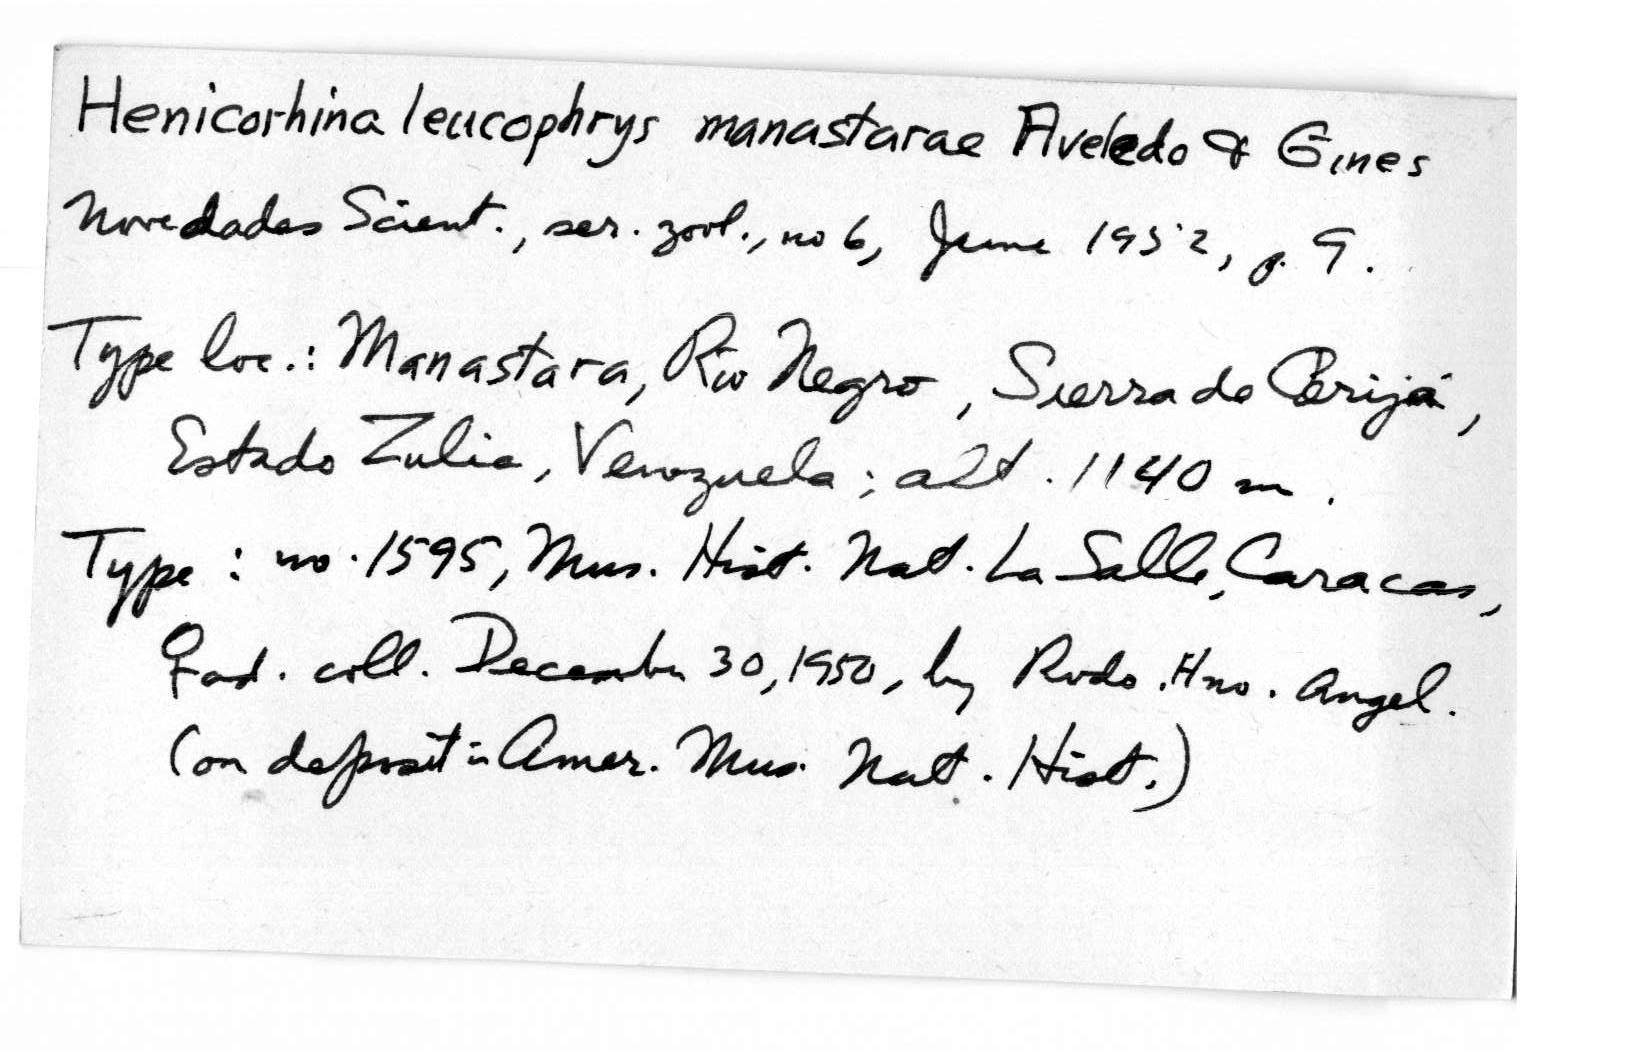 Henicorhina leucophrys manastarae Aveledo & Gines
Novedades Scient., ser. zool., no 6, June 1952, p. 9.
Type loc.: Manastara, Rio Negro, Sierra de Perijá,
Estado Zulia, Venezuela; alt. 1140 m.
Type: no. 1595, Mus. Hist. Nat. La Salle, Caracas,
♀ ad. coll. December 30, 1950, by Rvdo. Hno. Angel.
(on deposit in Amer. Mus. Nat. Hist.)